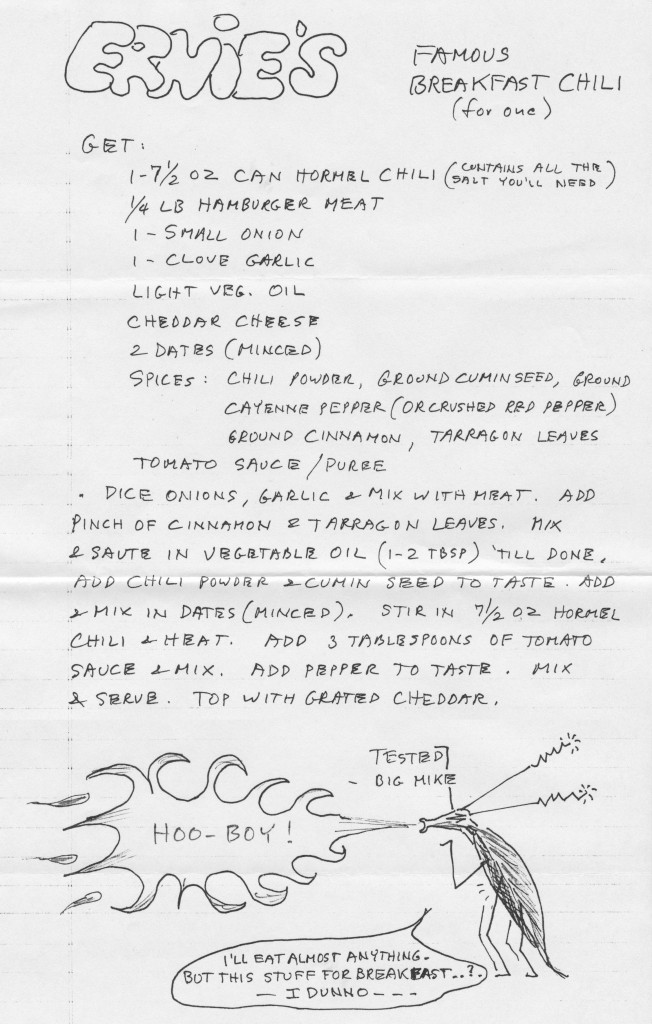 ERNIE'S
FAMOUS
BREAKFAST CHILI
(for one)
GET:
1-7½ OZ CAN HORMEL CHILI (CONTAINS ALL THE
SALT YOU'LL NEED)
¼ LB HAMBURGER MEAT
1 - SMALL ONION
1 - CLOVE GARLIC
LIGHT VEG. OIL
CHEDDAR CHEESE
2 DATES (MINCED)
SPICES: CHILI POWDER, GROUND CUMIN SEED, GROUND
CAYENNE PEPPER (OR CRUSHED RED PEPPER)
GROUND CINNAMON, TARRAGON LEAVES
TOMATO SAUCE/PUREE
. DICE ONIONS, GARLIC & MIX WITH MEAT. ADD
PINCH OF CINNAMON & TARRAGON LEAVES. MIX
& SAUTE IN VEGETABLE OIL (1-2 TBSP) 'TILL DONE.
ADD CHILI POWDER & CUMIN SEED TO TASTE. ADD
& MIX IN DATES (MINCED). STIR IN 7½ OZ HORMEL
CHILI & HEAT. ADD 3 TABLESPOONS OF TOMATO
SAUCE & MIX. ADD PEPPER TO TASTE. MIX
& SERVE. TOP WITH GRATED CHEDDAR.
TESTED
- BIG MIKE
HOO-BOY!
I'LL EAT ALMOST ANYTHING.
BUT THIS STUFF FOR BREAKFAST..?.
— I DUNNO - - -